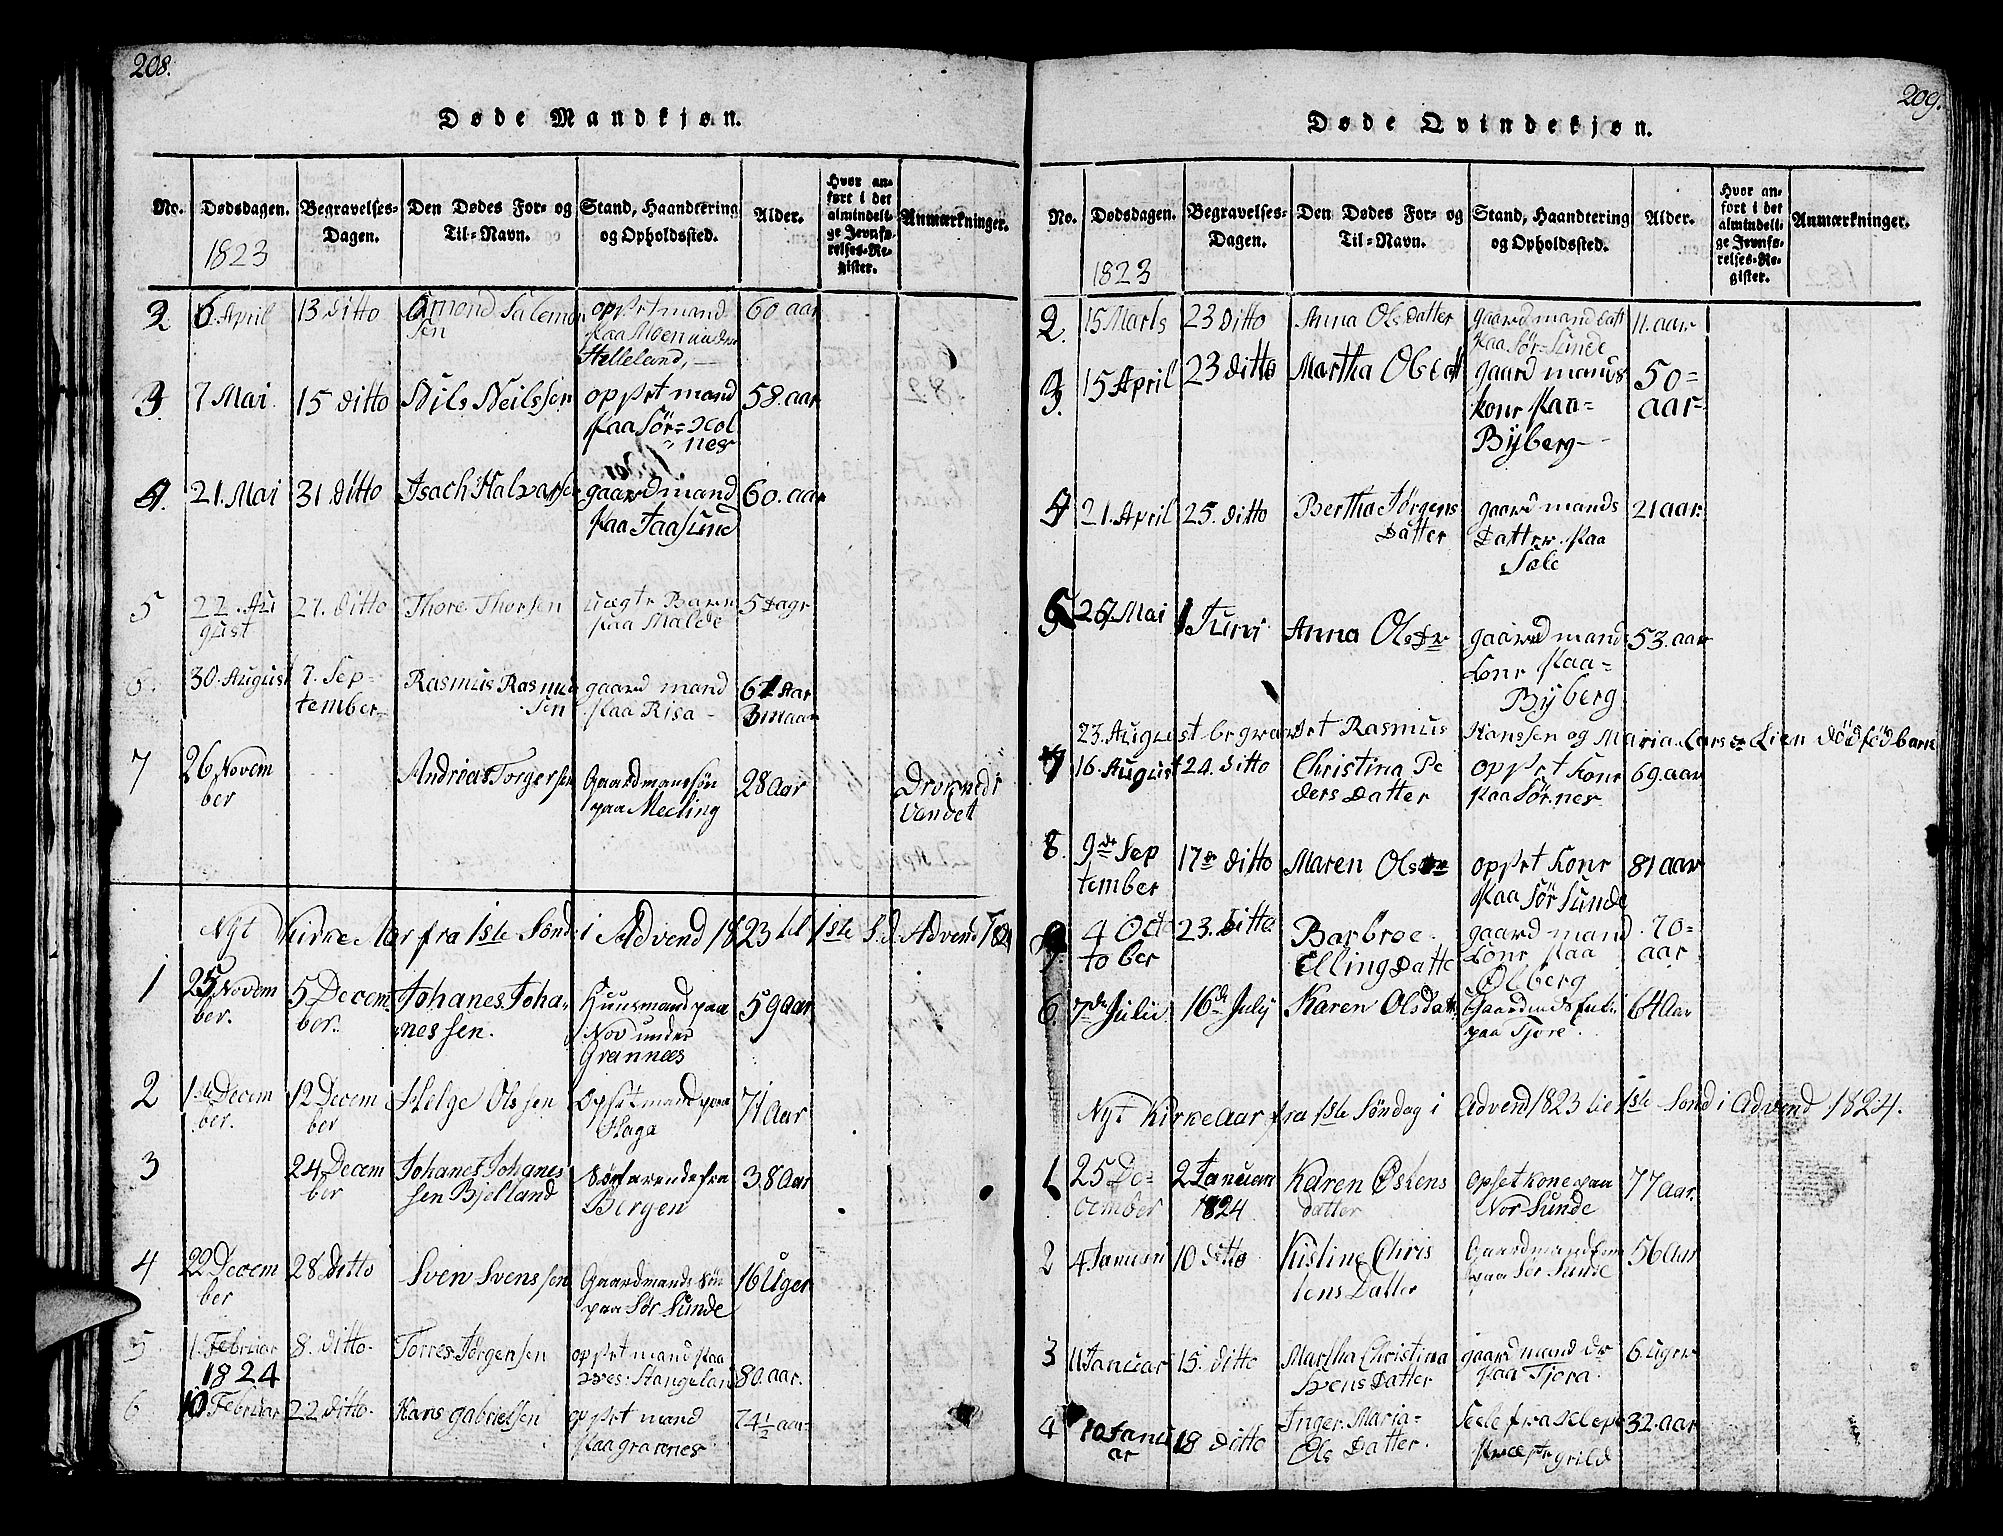 208.
Døde Mandkjøn.
No. Dødsdagen. Begravelses-Dagen. Den Dødes For- og Til-Navn. Stand, Haandtering og Opholdssted. Alder. Hvor anført i det almindelige Jevnførelses-Register. Anmærkninger.
1823
2 6 April 13 Ditto Omond Salemon
sen opsrt mand
paa Moen under
Helleland, 60 aar
3. 7 Mai 15 ditto Nils Neilssen opsrt mand
paa Sör= Kol
nes 58. aar
4. 21. Mai 31 ditto Isach Halvarsen gaard mand
paa Taasund 60. aar
5 22. Au
gust 27. ditto Thore Thorsen uægte Barn
paa Malde 5 Dage
6. 30. August 7. Sep=
tember Rasmus Rasmus
sen gaard mand
paa Risa 61 Aar
3 maan
7 26 Novem
ber Andrias Torgersen Gaardmanssön
paa Meeling 28 Aar Drovnedr
Vandet
Nyt Kirke Aar fra 1ste Sönd i Advend 1823 til 1ste S. i Advend 1824
1 25 Novem
ber. 5 Decem
ber. Johanes Joha
nessen. Huusmand paa
Nov under
Grannæs 59 aar
2 1ste Decem
ber. 12 Decem
ber Helge Olssen Opsetmand paa
Haga 71 Aar
3 24 Decem
ber Johanes Johanes
sen Bjelland Söefarende fra
Bergen 38 Aar
4 22 Decem
ber 28 Ditto Sven Svenssen Gaardmands Sön
paa Sör Sunde 16 Uger
5 1. Februar
1824 8. ditto Torres Jörgensen opsrt mand paa
Stangeland 80. aar.
6 10 Februar 22 ditto Hans gabrielsen opsrt mand
paa grannes 74½ aar
209.
Døde Qvindekjøn.
No. Dødsdagen. Begravelses-Dagen. Den Dødes For- og Til-Navn. Stand, Haandtering og Opholdssted. Alder. Hvor anført i det almindelige Jevnførelses-Register. Anmærkninger.
1823
2. 15 Marts 23 Ditto Anna Olsdatter gaardmand datt
paa Sör=Sunde 11. aar
3. 15 April 23 ditto Martha Olsdatt gaard mands
konr paa
Bijberg 50=
aar
4 21. April 25. ditto Bertha Jörgens
Datter gaard mands
Datter paa
Söle 21 aar
5 26 Mai 1 Juni Anna Olsdr gaard mand
konr paa
Bijberg 53. aar
23. August begravet Rasmus Hanssen og Maria Larsdr Lien dödfödbarn
7 16. August 24. ditto Christina Pe
dersdatter opsrt konr
paa Sörnes 69. aar
8. 9de Sep
tember 17de ditto Maren Olsdr opsrt konr
paa Sör Sunde 81 aar
9 4 Octo
tober 23. ditto Barbroe
Ellingdatte gaard mand
konr paa
Ölberg 70=
aar
6. 7de Julii 16de Julij Karen Olsdatr Gaardmds
paa Tjore. 64 Aar
Nyt Kirke Aar fra 1ste Söndag i Advend 1823 til 1ste Sönd i Advend 1824.
1 25 De=
cember 2 Januari
1824 Karen Östens
datter Opsetkone paa
Nor Sunde 77 aar.
2 4 Januari 10 ditto Kistine Chris
tens Datter Gaardmand
paa Sör Sunde 56 aar
3 11 Januar 15. ditto Martha Christina
Svens Datter gaardmand dr
paa Tjora. 6 uger
4 10 Janu
ar 18 ditto Inger Maria=
Ols Datter. fra Klepe
præstegiæld 32. aar